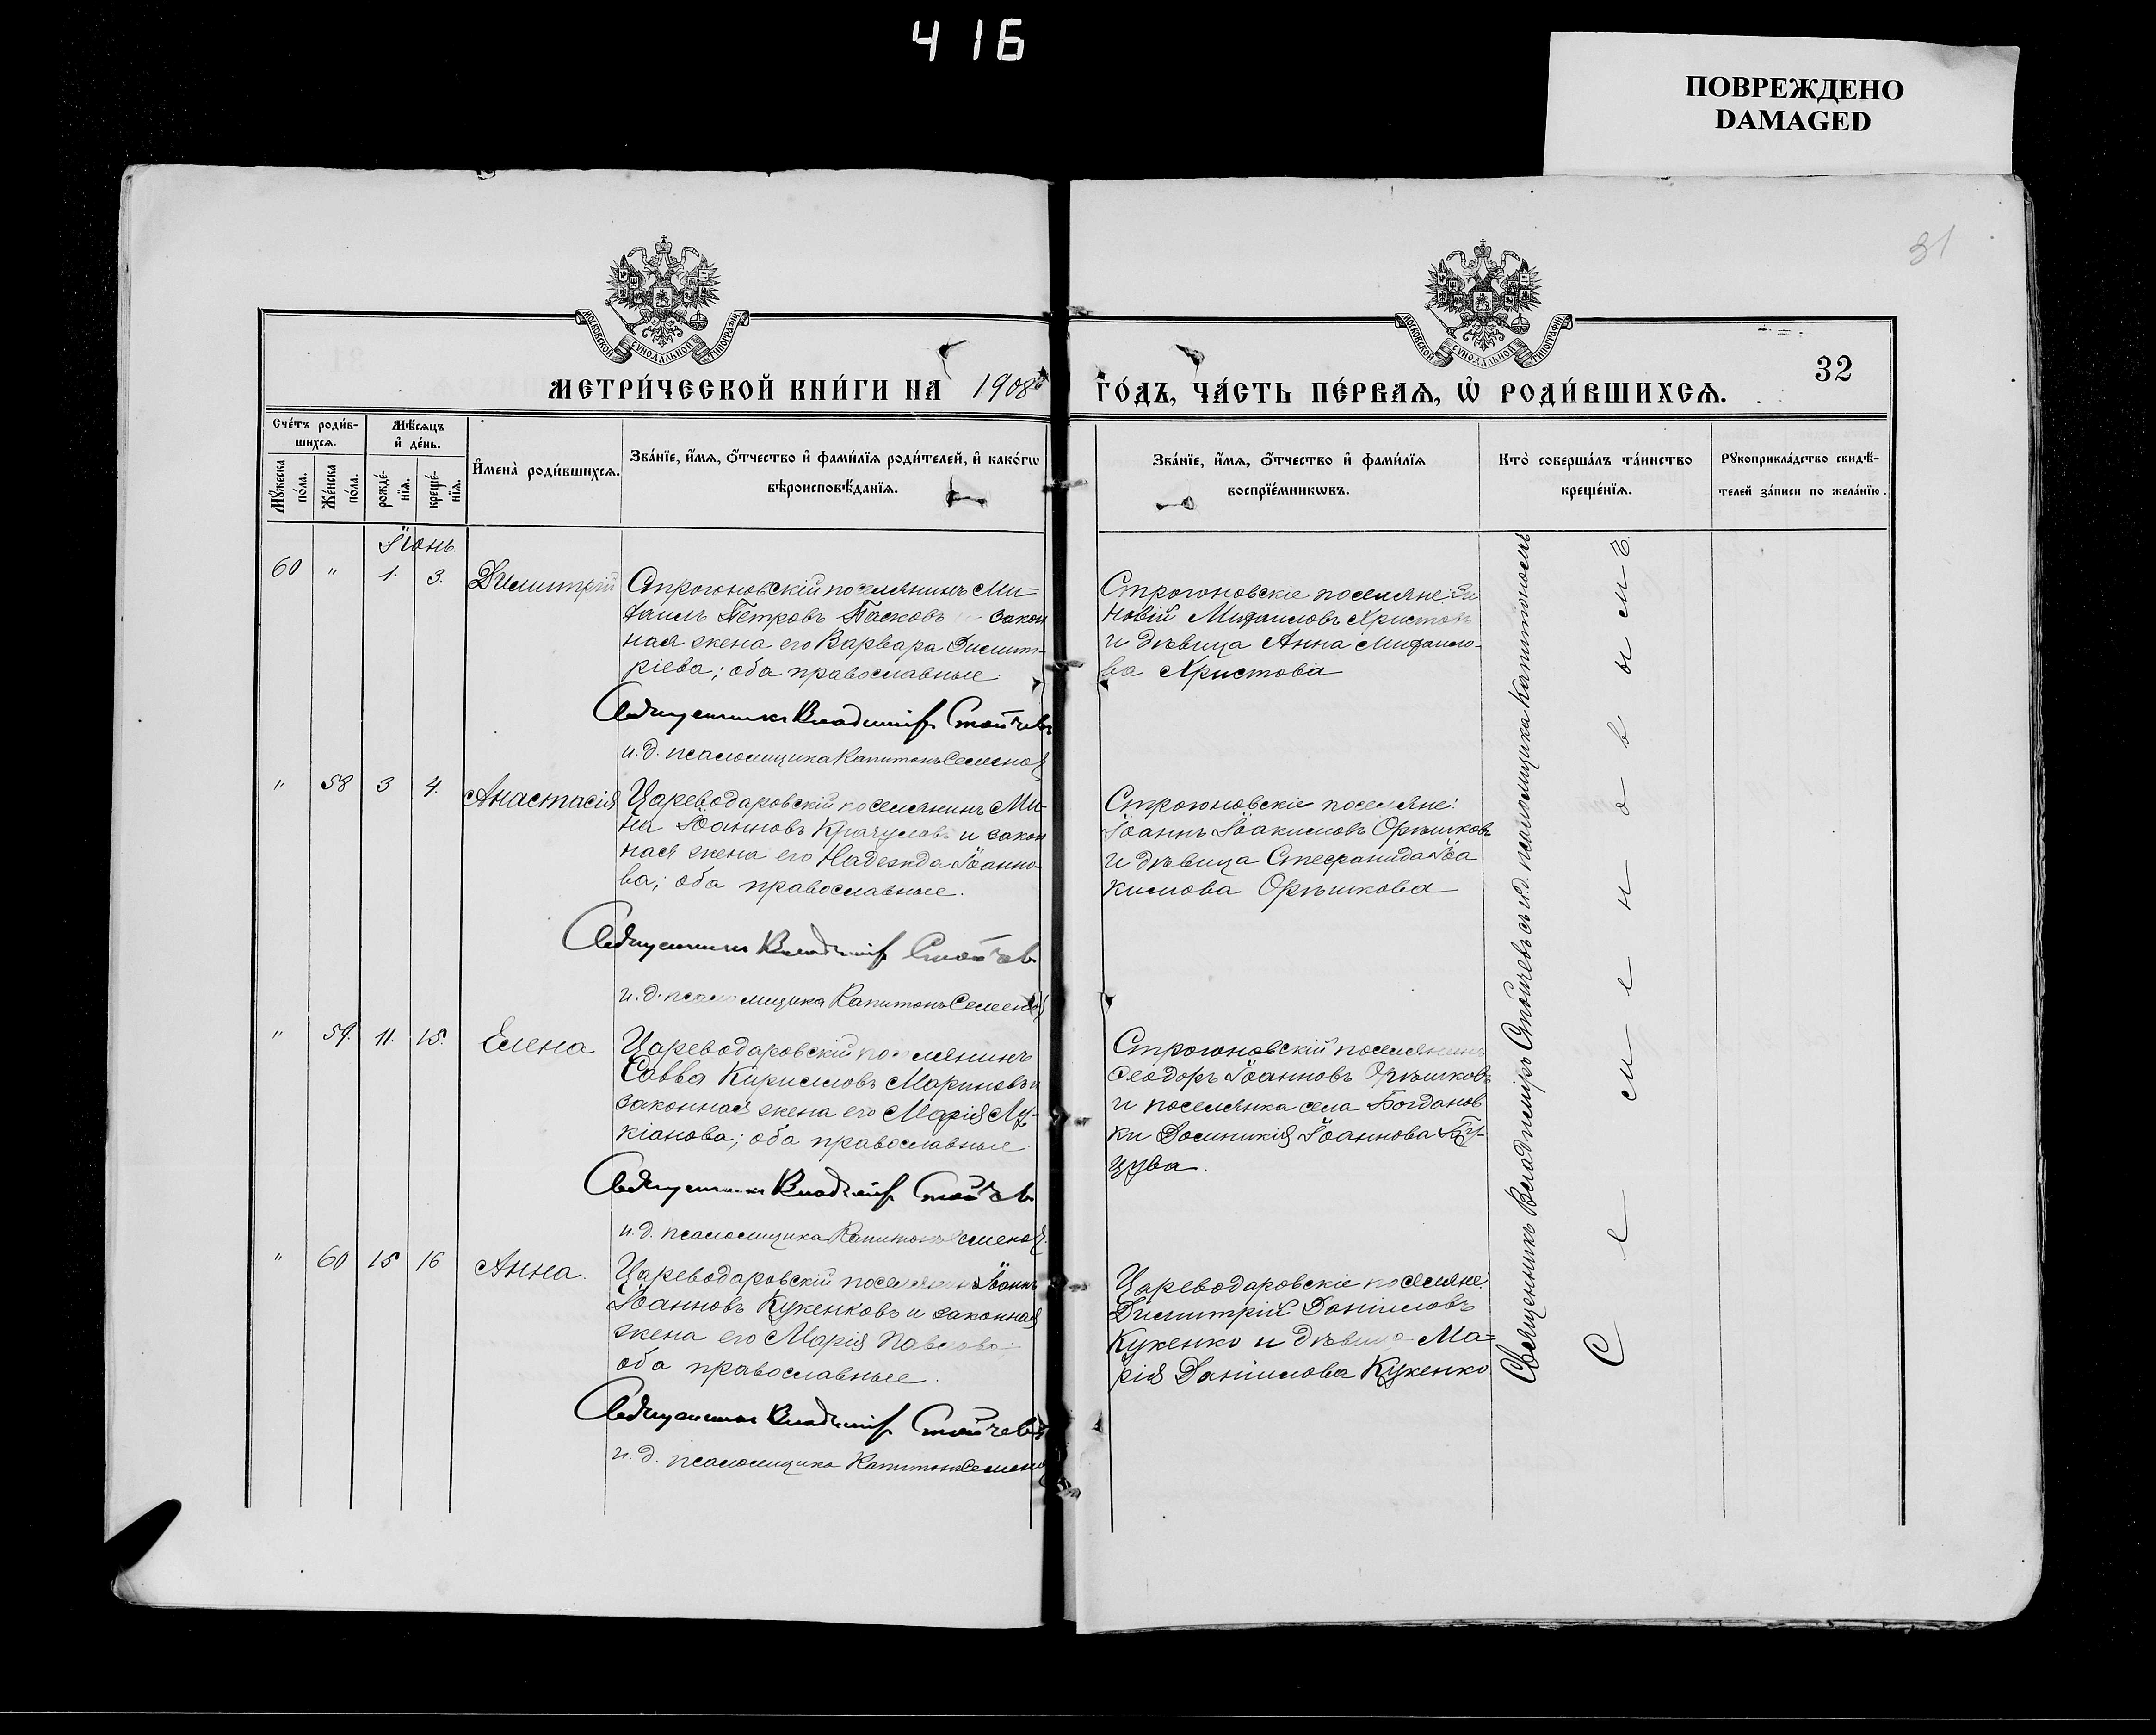 416
ПОВРЕЖДЕНО
DAMAGED
31
МОСКОВСКОЙ СѴНОДАЛЬНОЙ ТИПОГРАФІИ
МОСКОВСКОЙ СѴНОДАЛЬНОЙ ТИПОГРАФІИ
32
МЕТРИ́ЧЕСКОЙ КНИ́ГИ НА 1908й
ГО́ДЪ, ЧА́СТЬ ПЕ́РВАѦ, Ѡ҆ РОДИ́ВШИХСѦ.
Сче́тъ роди́в-
шихсѧ.
Мѣ́сяцъ
и҆ де́нь.
Мꙋ́жеска
по́ла.
Же́нска
по́ла.
рожде́-
нїѧ.
креще́-
нїѧ.
И҆мена̀ роди́вшихсѧ.
Зва́нїе, и҆́мѧ, ѻ҆́тчество и҆ фами́лїѧ роди́телей, и҆ како́гѡ
вѣроисповѣ́данїѧ.
Зва́нїе, и҆́мѧ, ѻ҆́тчество и҆ фами́лїѧ
воспрїе́мникѡвъ.
Кто̀ соверша́лъ та́инство
креще́нїѧ.
Рꙋкоприкла́дство свидѣ́-
телей за́писи по жела́нїю.
Іюнь.
60 " 1. 3. Димитрій
Строгоновскій поселянинъ Ми-
хаилъ Петровъ Пасковъ закон
ная жена его Варвара Димит-
ріева; оба православные.
Священникъ Владиміръ Стойчевъ
и. д. псаломщика Капитонъ Семенов
Строгоновскіе поселяне: Зи
новій Михаиловъ Христовъ
и дѣвица Анна Михаило-
ва Христова
" 58 3 4. Анастасія
Цареводаровскій поселянинъ Ми-
на Іоанновъ Крачуловъ и закон
ная жена его Надежда Іоанно-
ва; оба православные.
Священникъ Владиміръ Стойчев
и. д. псаломщика Капитонъ Семенов
Строгоновскіе поселяне:
Іоаннъ Іоакимовъ Орѣшковъ
и дѣвица Стефанида Іоа
кимова Орѣшкова
" 59. 11. 15. Елена
Цареводаровскій поселянинъ
Савва Кирилловъ Мариновъ и
законная жена его Марія Лу-
кіанова; оба православные.
Священникъ Владиміръ Стойчев
и. д. псаломщика Капитонъ Семенов.
Строгоновскій поселянинъ
Ѳеодоръ Іоанновъ Орѣшковъ
и поселянка села Богданов
ки Домникія Іоаннова
" 60 15 16 Анна.
Цареводаровскій поселянинъ Іоаннъ
Іоанновъ Кукенковъ и законная
жена его Марія Павлова;
оба православные.
Священникъ Владиміръ Стойчевъ
и. д. псаломщика Капитонъ Семенов
Цареводаровскіе поселяне:
Димитрій Даніиловъ
Кукенко и дѣвица Ма-
рія Даніилова Кукенко
Священникъ Владиміръ Стойчевъ съ и.д. псаломщика Капитономъ
Семеновымъ.